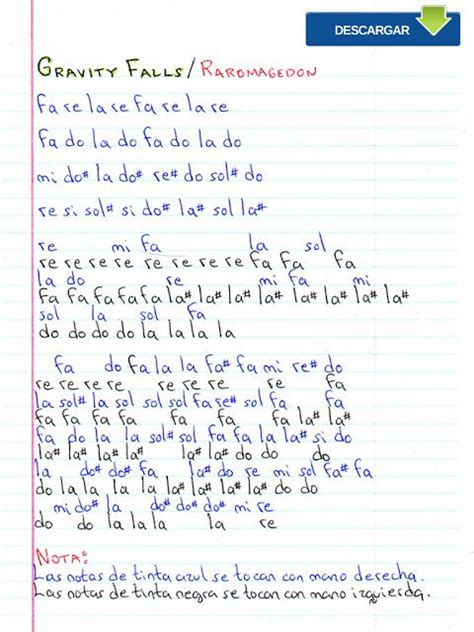 DESCARGAR
GRAVITY FALLS/RAROMAGEDON
fa re la re fa re la re
fa do la do fa do la do
mi do# la do# re# do sol# do
re si sol# si do# la# sol la#
re mi fa la sol
re re re re re re re re fa fa fa
la do re mi fa mi
fa fa fa fa fa fa la# la# la# la# la# la# la#
sol la sol fa
do do do do la la la la
fa do fa la la fa# fa mi re# do
re re re re re re re re fa
la sol# la sol sol sol fa re# sol fa fa
fa fa fa fa fa fa fa la# la#
fa do la la sol# sol fa fa la la# si do
la# la# la# la# la# la# do do do
la do# do# fa la# do re mi sol fa# fa
do la la la la la# la# la# la# do do
mi do# la do# do# do# mi re
do do la la la la re
NOTA:
Las notas de tinta azul se tocan con mano derecha.
Las notas de tinta negra se tocan con mano izquierda.